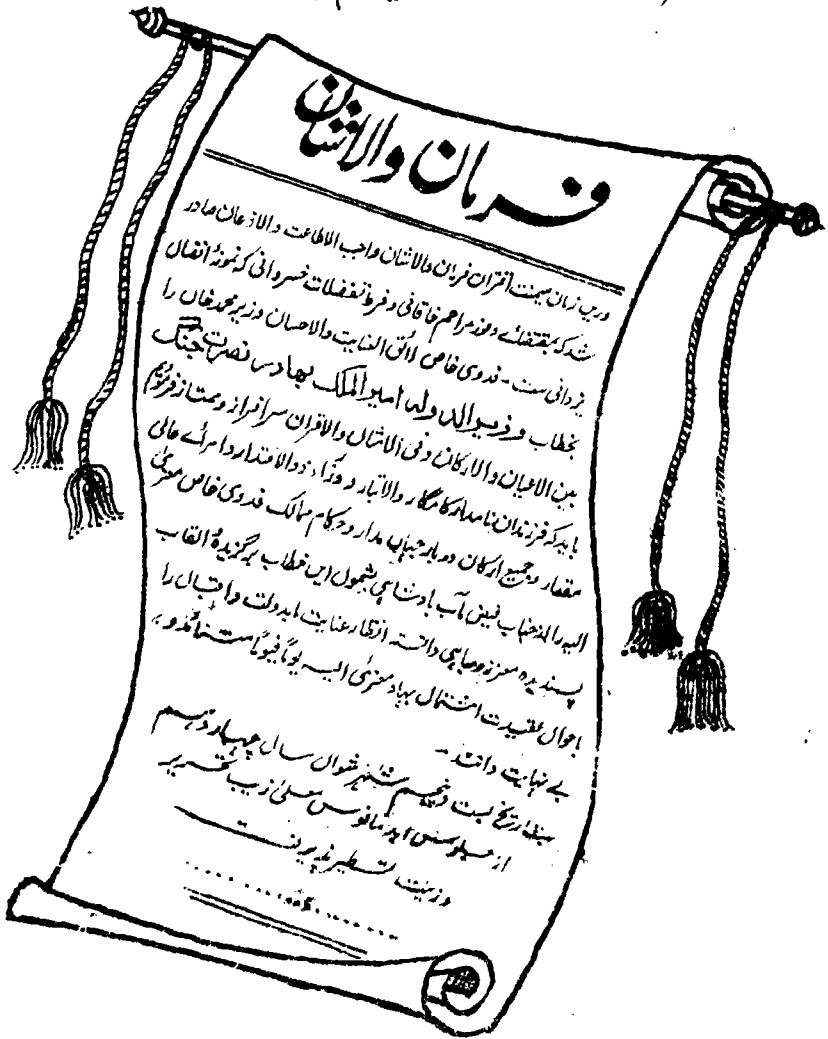 فرمان والاشان
درین زمان میمنت اقتران فرمان والاشان واجب الاطاعت والاذعان صادر
شد کہ بمقتضائے وفور مراحم خاقانی وفرط تفضلات خسروانی کہ نمونۂ افضال
یزدانی ست ۔ فدوی خاص لائق العنایت والاحسان وزیر محمد خاں را
بخطاب وزیر الدولہ امیر الملک بہادر نصرت جنگ
بین الاعیان والارکان وفی الامثال والاقران سرافراز وممتاز فرمودیم
باید کہ فرزندان نامدار کامگار والاتبار و وزراء ذوالاقتدار وامرائے عالی
مقدار وجمیع ارکان دربار جہاں مدار وحکام ممالک فدوی خاص معزیٰ
الیہ را از جناب فیض مآب بادشاہی بشمول ایں خطاب برگزیدۂ القاب
پسندیدہ معزز ومباہی دانستہ انظار عنایت مابدولت واقبال را
باحوال عقیدت اشتمال بہادر معزیٰ الیہ یوماً فیوماً
بے نہایت دانند ۔
بتاریخ بست وپنجم شہر شوال سال چہاردہم
از جلوس معلیٰ زیب تحریر
وزینت تسطیر پذیرفت